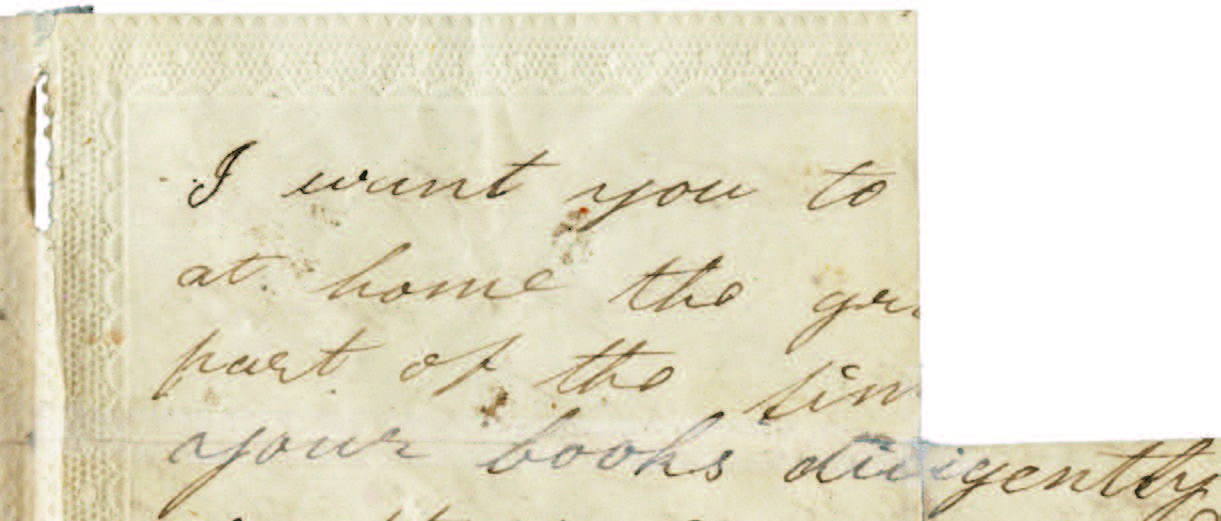 I want you to
at home the
part of the
your books diligently